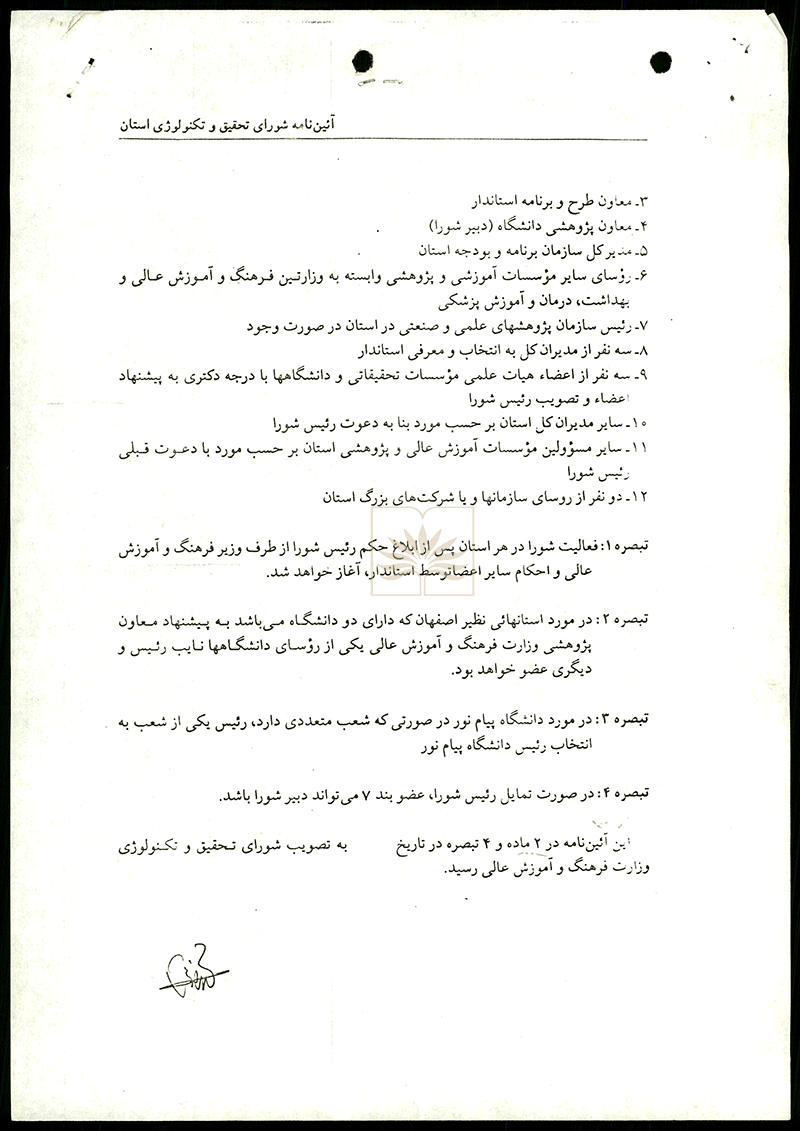 آئین‌نامه شورای تحقیق و تکنولوژی استان
۳ـ معاون طرح و برنامه استاندار
۴ـ معاون پژوهشی دانشگاه (دبیر شورا)
۵ـ مدیر کل سازمان برنامه و بودجه استان
۶ـ رؤسای سایر مؤسسات آموزشی و پژوهشی وابسته به وزارتین فرهنگ و آموزش عالی و
بهداشت، درمان و آموزش پزشکی
۷ـ رئیس سازمان پژوهشهای علمی و صنعتی در استان در صورت وجود
۸ـ سه نفر از مدیران کل به انتخاب و معرفی استاندار
۹ـ سه نفر از اعضاء هیات علمی مؤسسات تحقیقاتی و دانشگاهها با درجه دکتری به پیشنهاد
اعضاء و تصویب رئیس شورا
۱۰ـ سایر مدیران کل استان بر حسب مورد بنا به دعوت رئیس شورا
۱۱ـ سایر مسؤولین مؤسسات آموزش عالی و پژوهشی استان بر حسب مورد با دعوت قبلی
رئیس شورا
۱۲ـ دو نفر از روسای سازمانها و یا شرکت‌های بزرگ استان
تبصره ۱: فعالیت شورا در هر استان پس از ابلاغ حکم رئیس شورا از طرف وزیر فرهنگ و آموزش
عالی و احکام سایر اعضاتوسط استاندار، آغاز خواهد شد.
تبصره ۲: در مورد استانهائی نظیر اصفهان که دارای دو دانشگاه می‌باشد به پیشنهاد معاون
پژوهشی وزارت فرهنگ و آموزش عالی یکی از رؤسای دانشگاهها نایب رئیس و
دیگری عضو خواهد بود.
تبصره ۳: در مورد دانشگاه پیام نور در صورتی که شعب متعددی دارد، رئیس یکی از شعب به
انتخاب رئیس دانشگاه پیام نور
تبصره ۴: در صورت تمایل رئیس شورا، عضو بند ۷ می‌تواند دبیر شورا باشد.
این آئین‌نامه در ۲ ماده و ۴ تبصره در تاریخ به تصویب شورای تحقیق و تکنولوژی
وزارت فرهنگ و آموزش عالی رسید.